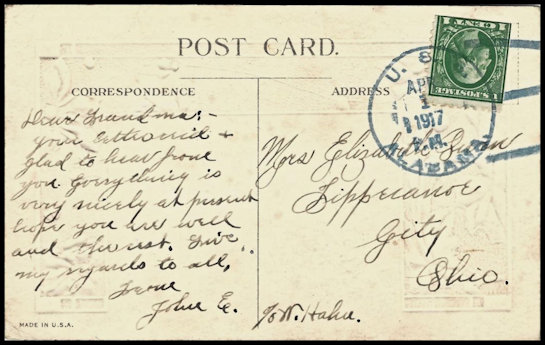 POST CARD.
CORRESPONDENCE
ADDRESS
U. S. S.
APR
1
1917
A.M.
ALABAMA
U.S. POSTAGE
1
Dear Grandma:-
your card rec'd +
glad to hear from
you. Everything is
very nicely at present
hope you are well
and the rest. Give
my regards to all,
From
John E.
Mrs Elizabeth
Tippecanoe
City
Ohio.
c/o W. Hahn.
MADE IN U.S.A.